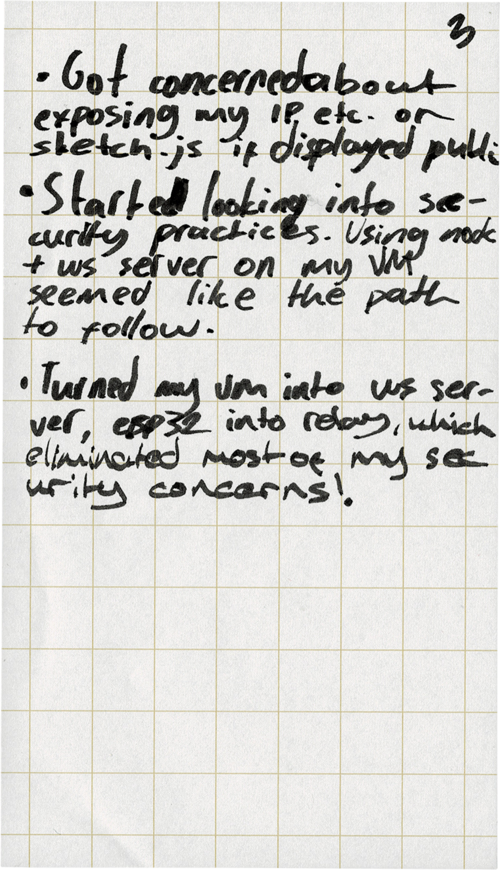 3
• Got concerned about
exposing my IP etc. on
sketch.js if displayed publi
• Started looking into sec-
curity practices. Using node
+ ws server on my VM
seemed like the path
to follow.
• Turned my vm into ws ser-
ver, esp32 into relay, which
eliminated most of my sec
urity concerns!